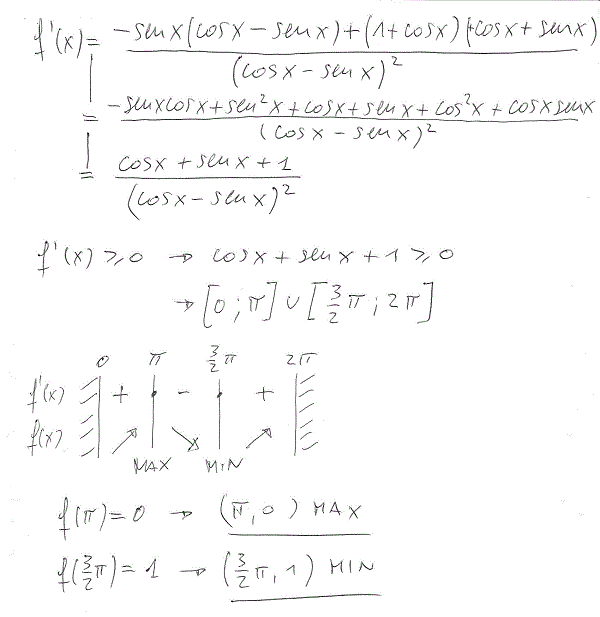 f'(x) = -senx(cosx - senx) + (1+cosx)(+cosx + senx) / (cosx - senx)²
= -senxcosx + sen²x + cosx + senx + cos²x + cosxsenx / (cosx - senx)²
= cosx + senx + 1 / (cosx - senx)²
f'(x) ⩾ 0 → cosx + senx + 1 ⩾ 0
→ [0 ; π] ∪ [3/2 π ; 2π]
0 π 3/2 π 2π
f'(x) + - +
f(x) ↗ ↘ ↗
MAX MIN
f(π) = 0 → (π, 0) MAX
f(3/2 π) = 1 → (3/2 π, 1) MIN